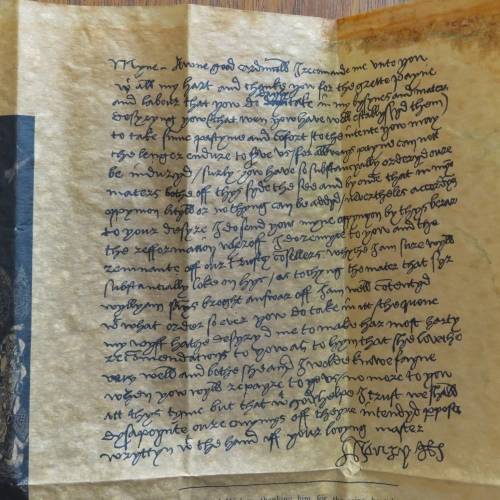 Myne awne good cardinall I recomande me unto you
w all my hart and thanke you for the grette payne
and labour that yow do dayly take in my bysynes and maters
desyryng yow that wen yow have well establyssyd them
to take summe pastyme and cofort to the intente yow may
the lenger endure to serve us for allways payne can nott
be induryd surly yow have so substancyally orderyd oure
maters bothe off thys syde the see and byonde that in myne
oppynyon lityll or no thyng can be addyd nevertheles accordyng
to your desyre I do send yow myne oppynyon by thys berar
the refformacion wheroff I do remytte to yow and the
remnante off our trusty cosellers whyche I am sure wyll
substantially loke on hyt as tochyng the mater that syr
wyllyam says broght answar off I am well cotentyd
w what order so ever yow do take in itt the quene
my wyff hathe desyryd me to make har most harty
recommendations to yow as to hym that she loveth
very well and bothe she and I wolde knowe fayne
when yow wyll repayre to us no more to yow
att thys tyme but that w gods helpe I trust we shall
dysapoynte oure enymys off theyre intendyd purpose
wryttyn w the hand off your lovyng master
Henry R
thanking him for the